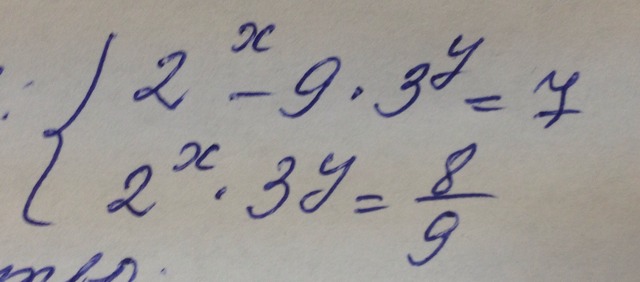 2^x - 9 · 3^y = 7
2^x · 3^y = 8/9